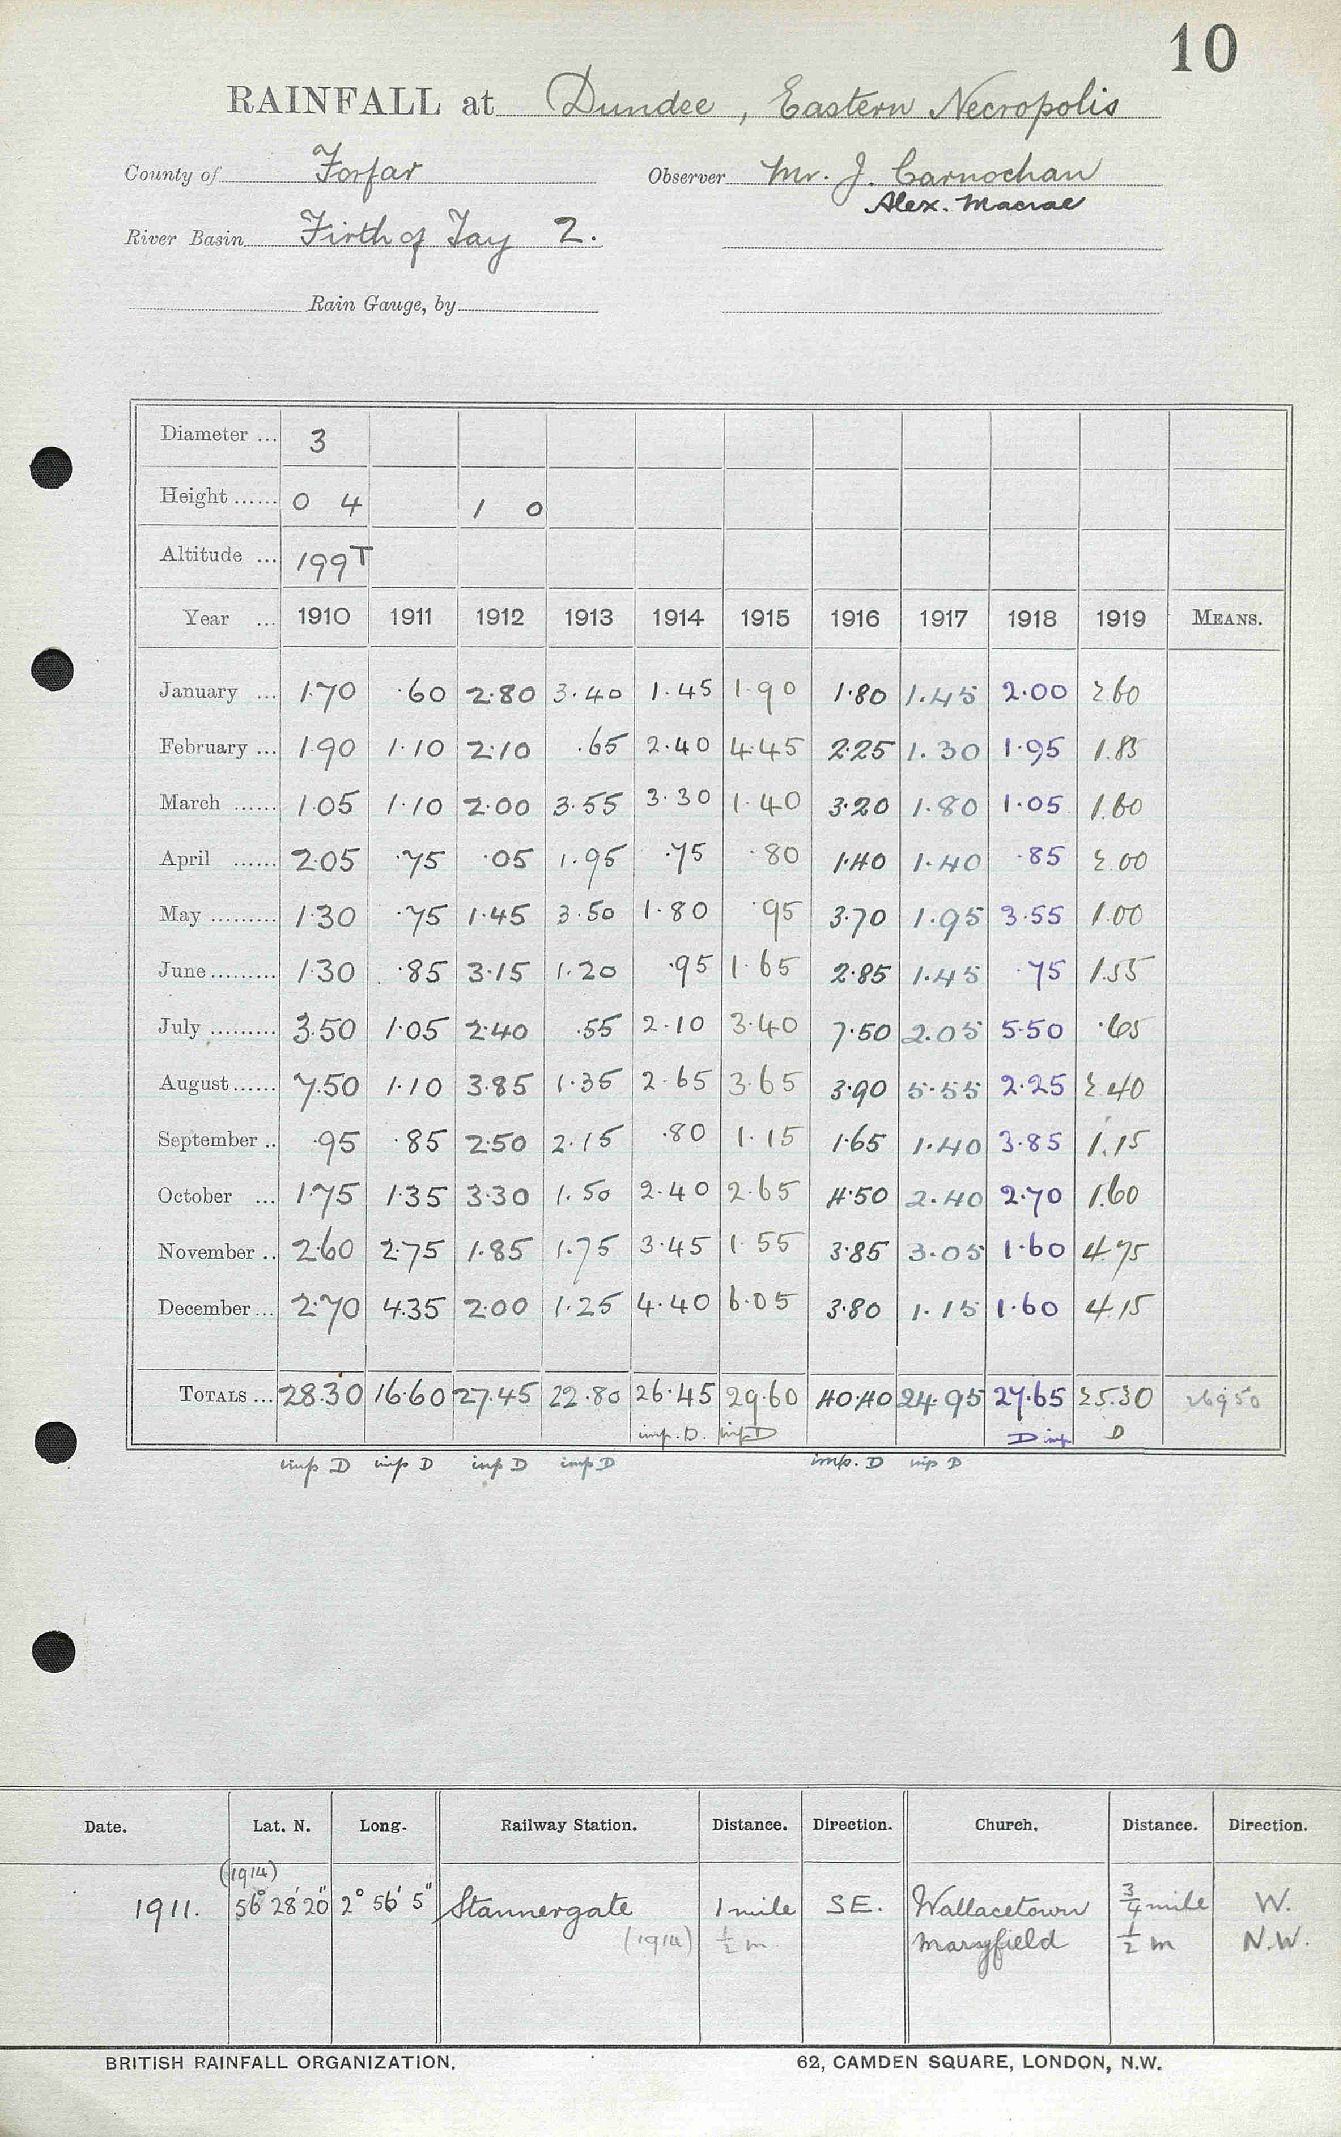 10
RAINFALL at Dundee, Eastern Necropolis
County of Forfar Observer Mr. J. Carnochan
Alex. Macrae
River Basin Firth of Tay 2.
Rain Gauge, by
Diameter ... 3
Height ...... 0 4 1 0
Altitude ... 199T
Year ... 1910 1911 1912 1913 1914 1915 1916 1917 1918 1919 MEANS.
January ... 1.70 .60 2.80 3.40 1.45 1.90 1.80 1.45 2.00 2.60
February ... 1.90 1.10 2.10 .65 2.40 4.45 2.25 1.30 1.95 1.85
March ...... 1.05 1.10 2.00 3.55 3.30 1.40 3.20 1.80 1.05 1.60
April ...... 2.05 .75 .05 1.95 .75 .80 1.40 1.40 .85 2.00
May ......... 1.30 .75 1.45 3.50 1.80 .95 3.70 1.95 3.55 1.00
June ......... 1.30 .85 3.15 1.20 .95 1.65 2.85 1.45 .75 1.55
July ......... 3.50 1.05 2.40 .55 2.10 3.40 7.50 2.05 5.50 .65
August ...... 7.50 1.10 3.85 1.35 2.65 3.65 3.90 5.55 2.25 2.40
September .. .95 .85 2.50 2.15 .80 1.15 1.65 1.40 3.85 1.15
October ... 1.75 1.35 3.30 1.50 2.40 2.65 4.50 2.40 2.70 1.60
November .. 2.60 2.75 1.85 1.75 3.45 1.55 3.85 3.05 1.60 4.75
December ... 2.70 4.35 2.00 1.25 4.40 6.05 3.80 1.15 1.60 4.15
TOTALS ... 28.30 16.60 27.45 22.80 26.45 29.60 40.40 24.95 27.65 25.30 26950
imp. D. imp D D imp D
imp D imp D imp D imp D imp. D imp D
Date. Lat. N. Long. Railway Station. Distance. Direction. Church. Distance. Direction.
(1914)
1911. 56° 28' 20" 2° 56' 5" Stannergate 1 mile SE. Wallacetown 3/4 mile W.
(1914) 1/2 m. Maryfield 1/2 m N.W.
BRITISH RAINFALL ORGANIZATION. 62, CAMDEN SQUARE, LONDON, N.W.